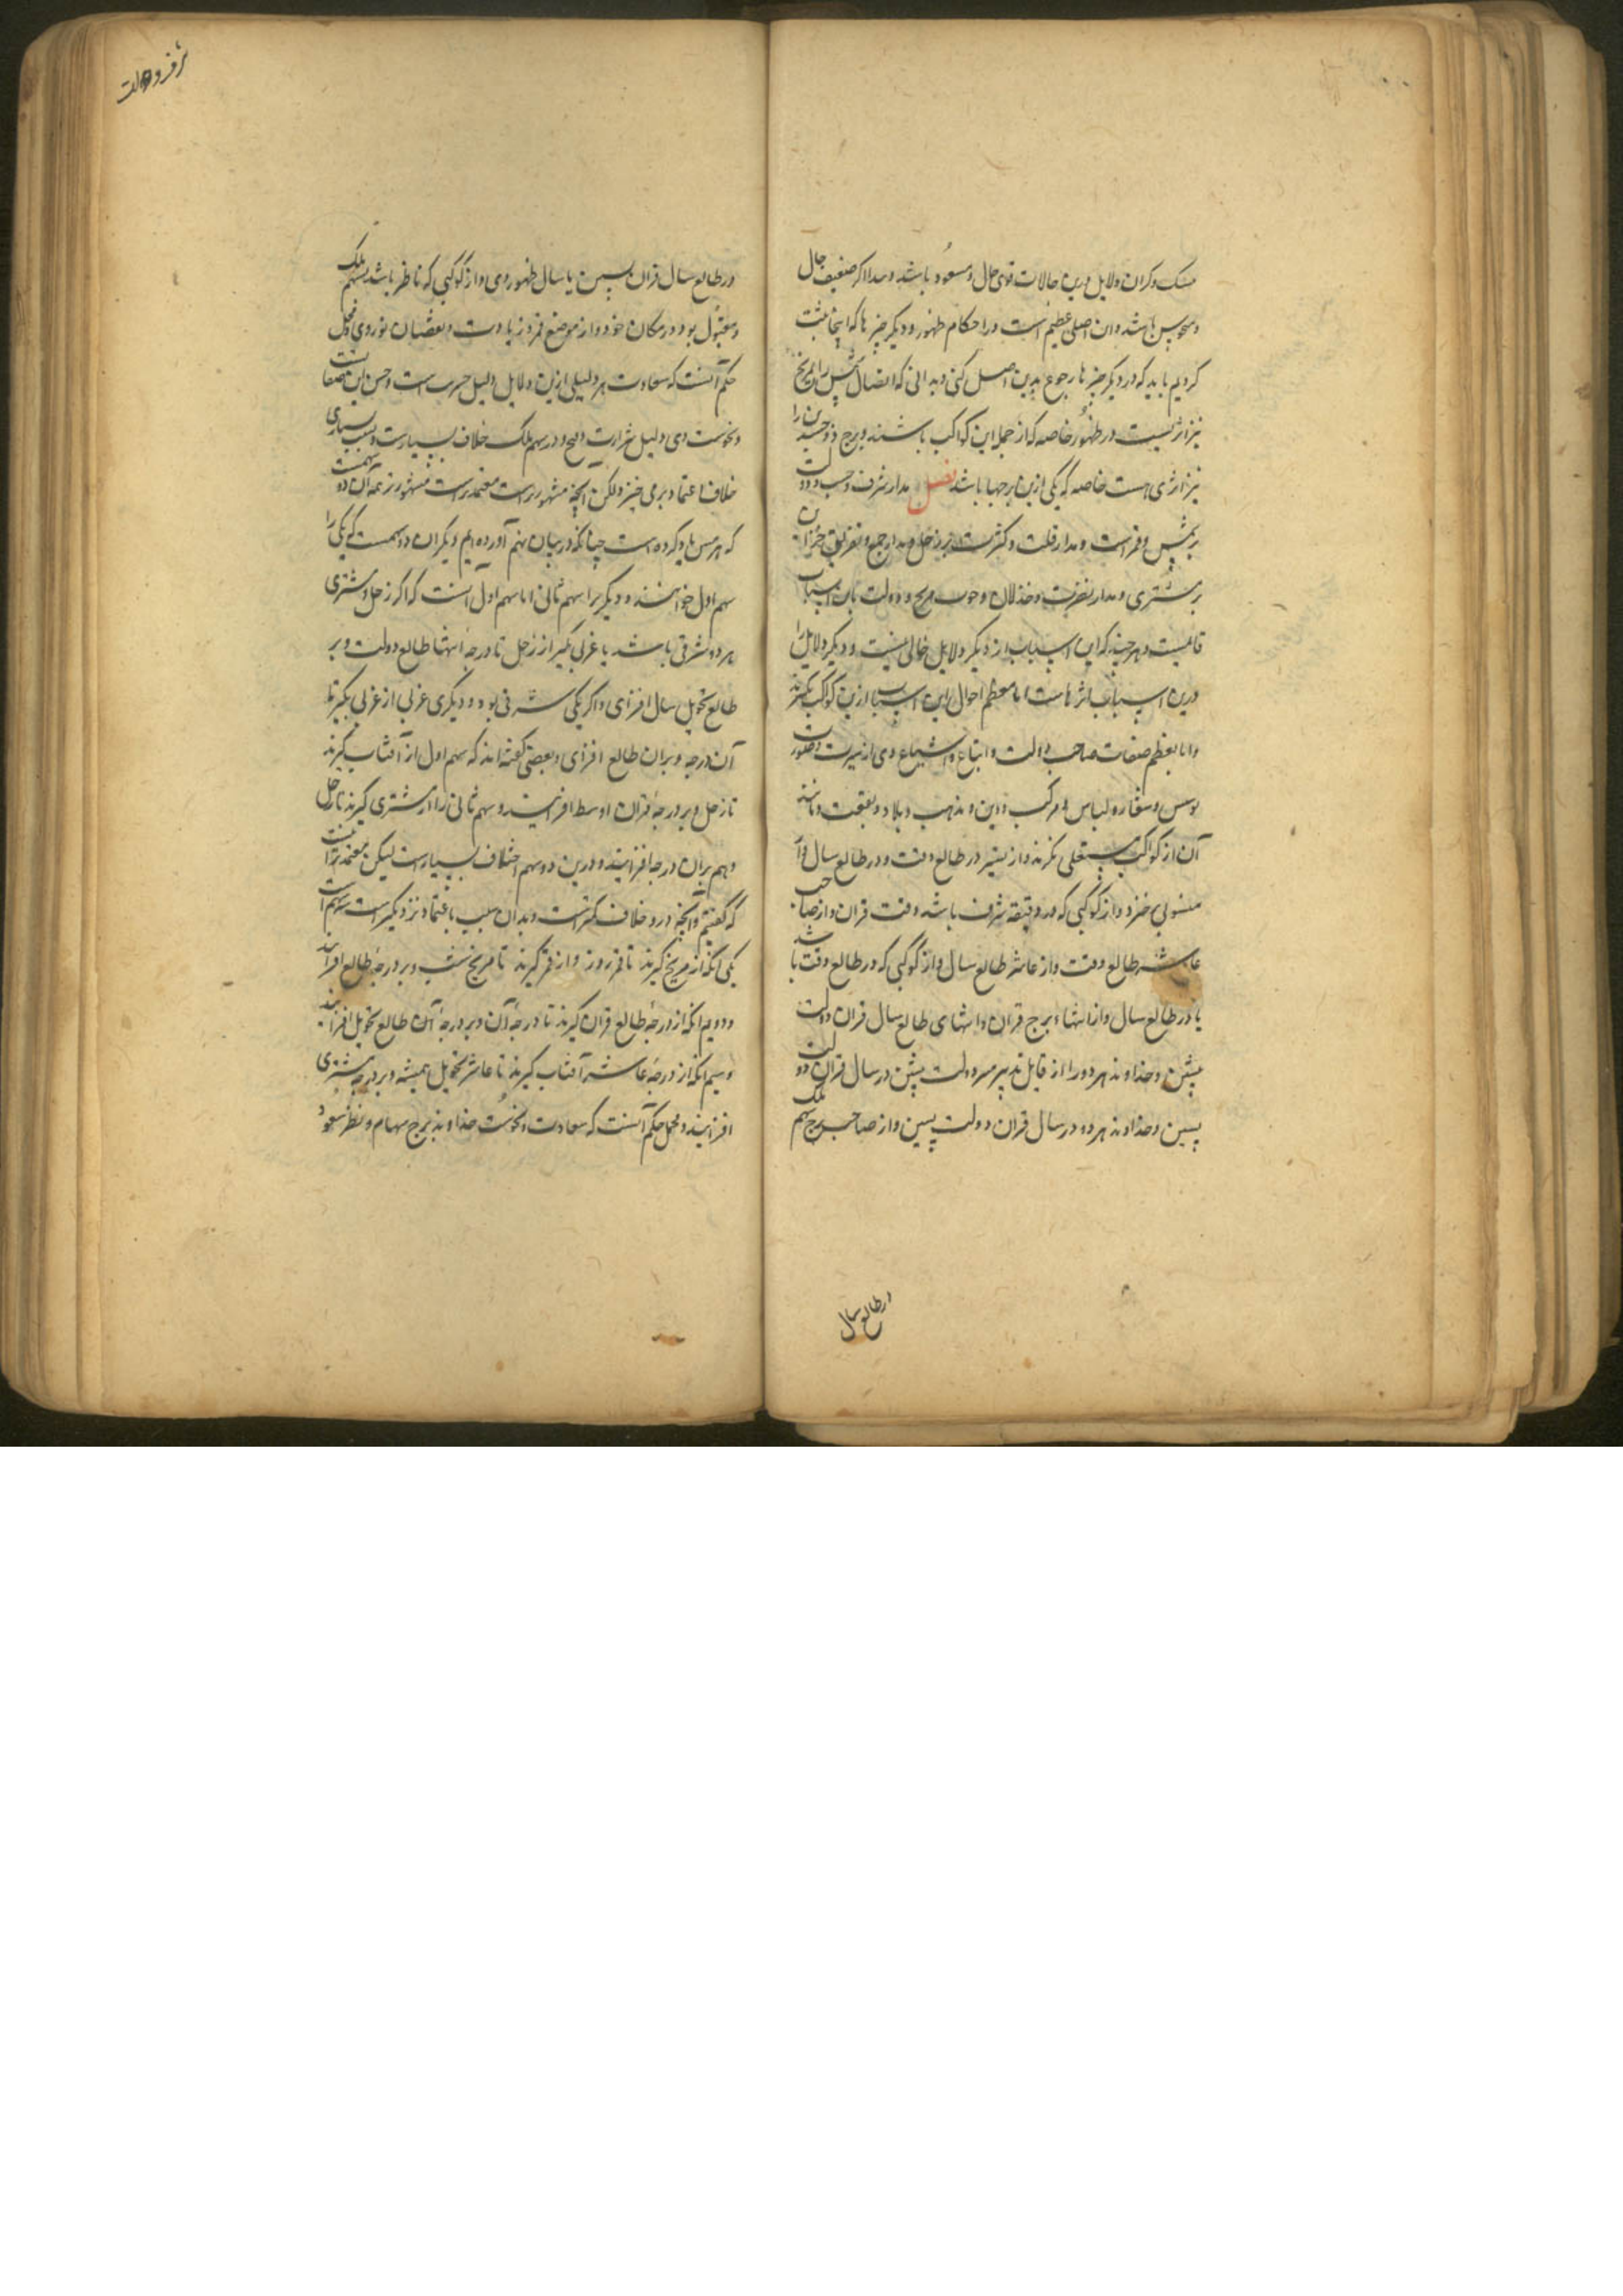 نیک و کران دلایل درین حالات قوی حال و مسعود باشد و مبدا اگر ضعیف حال
و منحوس باشد و این اصلی عظیم است در احکام ظهور و دیگر چیزها که اینجا مثبت
کردیم باید که در دیگر چیزها رجوع بدین اصل کنی و بدانی که اتصال شمس را بمریخ
نیز اثریست در ظهور خاصه که از جمله این کواکب باشند و برج ذو جسدین را
نیز اثری هست خاصه که یکی ازین برجها باشد فصل مدار شرف و حسب و دولت
بر شمس و قمر است و مدار قلت و کثرت بر زحل و مدار جمع و تفریق خزاین
بر مشتری و مدار نصرت و خذلان و حرب مریخ و دولت باین اسباب
قایمست و هر چند که این اسباب از دیگر دلایل خالی نیست و دیگر دلایل را
درین اسباب اثرهاست اما معظم احوال این اسباب ازین کواکب نگرند
و اما معظم صفات صاحب دولت و اتباع و اشیاع وی از سیرت و صورت
و لباس و مرکب و دین و مذهب و بلاد و بقعت و مانند
آن از کواکب مستعلی نگرند و از تسییر در طالع وقت و در طالع سال و از
مستولی جزو و از کوکبی که در دقیقه شرف باشد وقت قران و از صاحب
عاشر طالع وقت و از عاشر طالع سال و از کوکبی که در طالع وقت باشد
یا در طالع سال و از انتهاء برج قران و انتهای طالع سال قران دولت
پیشین و خداوند هر دو را از قابل تدبیر هر دو دولت پیشین در سال قران دولت
پسین و خداوند هر دو در سال قران دولت پسین و از صاحب برج سهم ملک
در طالع سال
در طالع سال قران پسین یا سال ظهور وی و از کوکبی که ناظر باشد بسهم ملک
و مقبول بود در مکان خود و از موضع قمر و زیادت و نقصان نور وی و مجمل
حکم آنست که سعادت هر دلیلی ازین دلایل دلیل حسن است و حسن این صفات
و نحوست وی دلیل شرارت و قبح و در سهم ملک خلاف بسیارست و بسبب بسیاری
خلاف اعتماد برمی خیزد و لکن آنچه مشهورست معتمدست مشهور نزد عمه آن دو سهمست
که هرمس یاد کرده است چنانکه در بیان سهم آورده ایم دیگران دو سهمست که یکی را
سهم اول خوانند و دیگر را سهم ثانی اما سهم اول آنست که اگر زحل و مشتری
هر دو شرقی باشند یا غربی بگیر از زحل تا درجه انتها طالع دولت و بر
طالع تحویل سال افزای و اگر یکی شرقی بود و دیگری غربی از غربی بگیر تا
آن درجه و بران طالع افزای و بعضی گفته اند که سهم اول از آفتاب گیرند
تا زحل و بر درجه قران اوسط افزایند و سهم ثانی را از مشتری گیرند تا زحل
و هم بران درجه افزایند و درین دو سهم اختلاف بسیارست لیکن معتمد آنست
که گفتیم و آنچه درو خلاف کمترست و بدان سبب باعتماد نزدیکترست سه سهم است
یکی آنکه از مریخ گیرند تا قمر روز و از قمر گیرند تا مریخ شب و بر درجه طالع افزایند
و دویم آنکه از درجه طالع قران گیرند تا درجه آن و بر درجه آن طالع تحویل افزایند
و سیم آنکه از درجه عاشر آفتاب گیرند تا عاشر تحویل همیشه و بر درجه مشتری
افزایند و مجمل حکم آنست که سعادت و نحوست خداوند برج سهام و نظر سعود